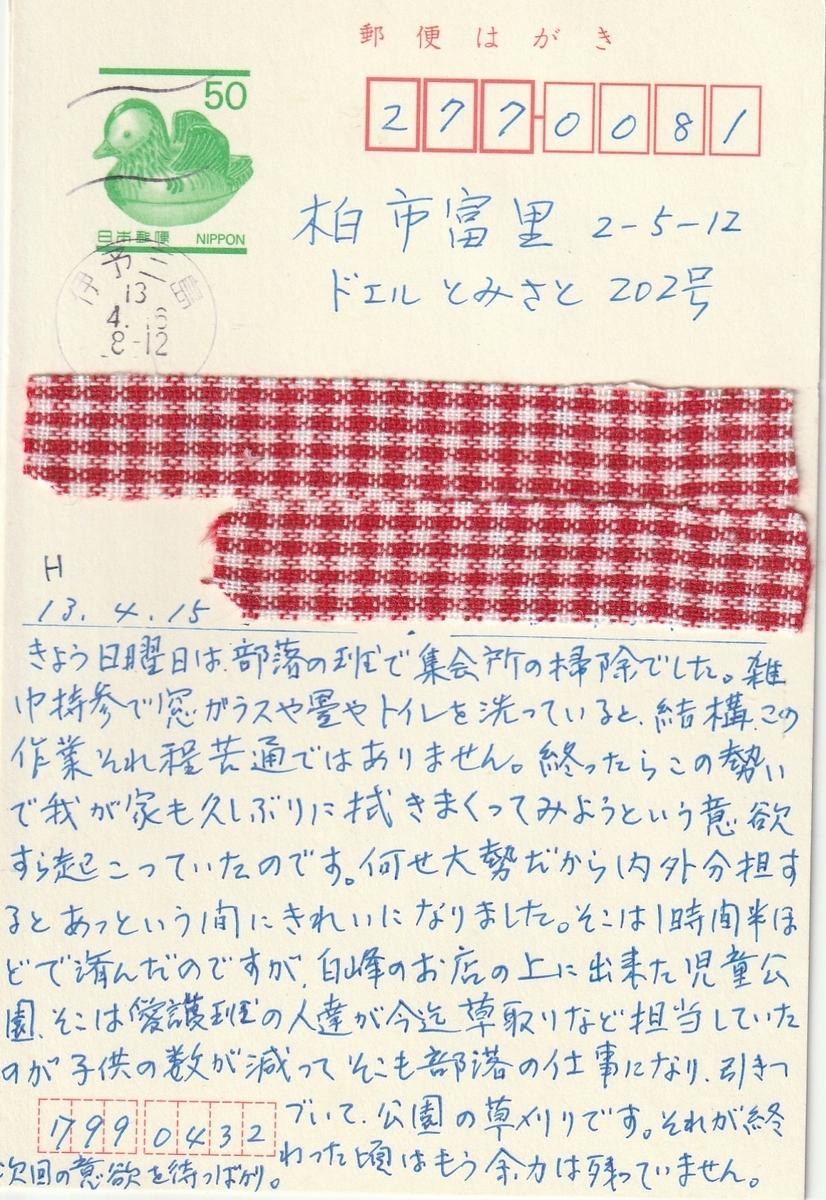 郵便はがき
50
日本郵便 NIPPON
277-0081
柏市富里 2-5-12
ドエルとみさと 202号
伊予三島
13
4. 16
8-12
H
13.4.15
きょう日曜日は、部落の班で集会所の掃除でした。雑
巾持参で窓ガラスや畳やトイレを洗っていると、結構、この
作業それ程苦痛ではありません。終ったらこの勢い
で我が家も久しぶりに拭きまくってみようという意欲
すら起こっていたのです。何せ大勢だから内外分担す
るとあっという間にきれいになりました。そこは1時間半ほ
どで済んだのですが、白峰のお店の上に出来た児童公
園、そこは愛護班の人達が今迄草取りなど担当していた
のが子供の数が減ってそこも部落の仕事になり、引きつ
づいて、公園の草刈りです。それが終
わった頃はもう余力は残っていません。
次回の意欲を待つばかり。
7990432